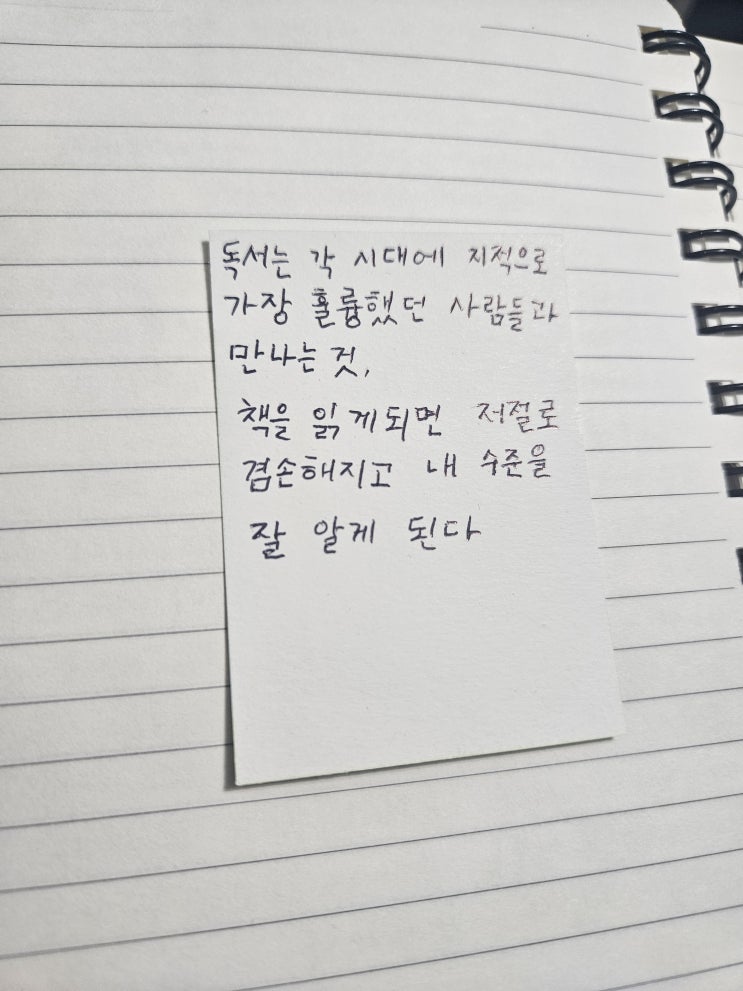 독서는 각 시대에 지적으로
가장 훌륭했던 사람들과
만나는 것,
책을 읽게되면 저절로
겸손해지고 내 수준을
잘 알게 된다